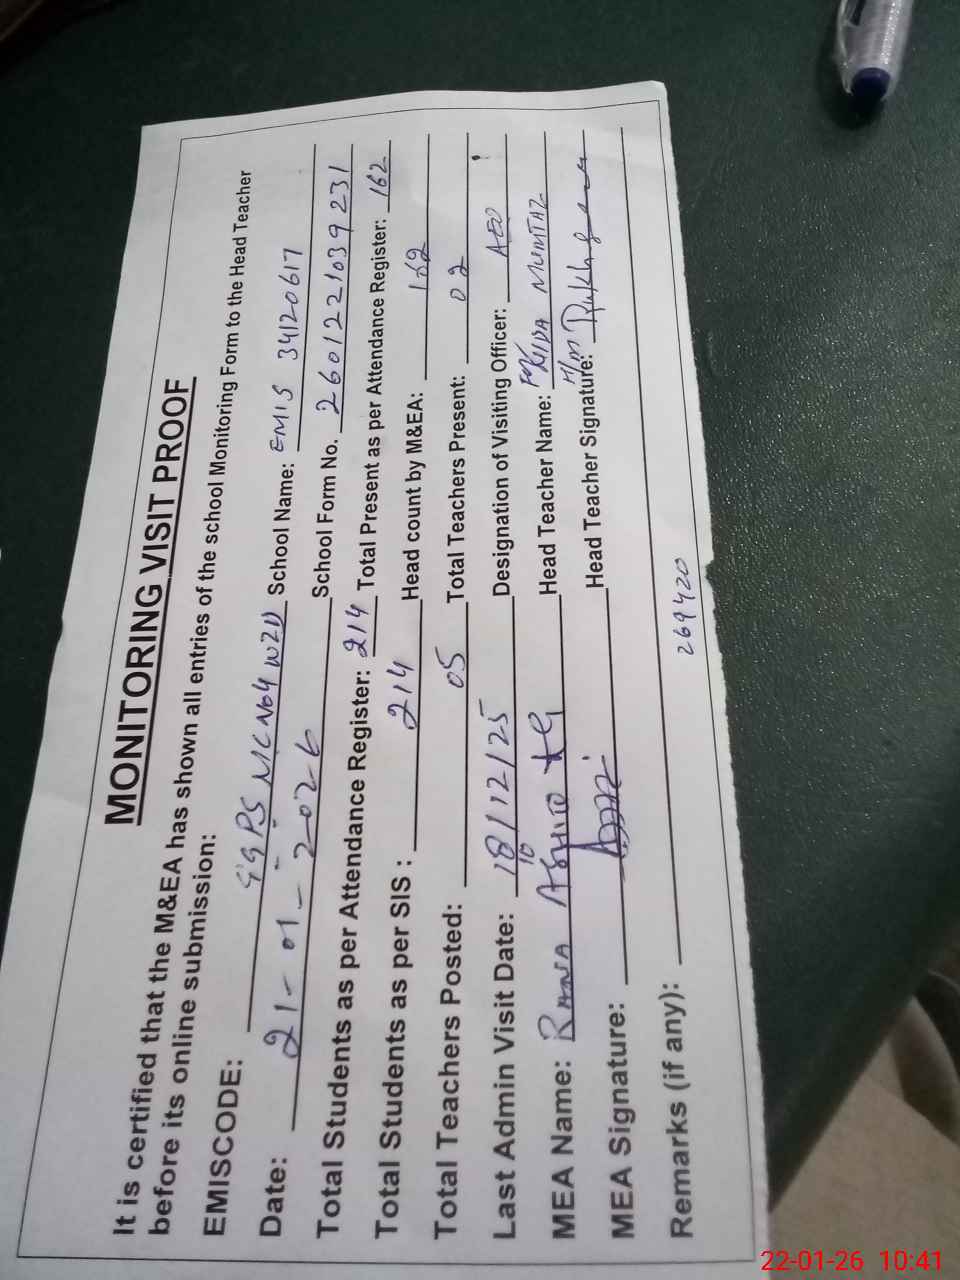 MONITORING VISIT PROOF
It is certified that the M&EA has shown all entries of the school Monitoring Form to the Head Teacher
before its online submission:
EMISCODE: GGPS MC No4 WZD School Name: EMIS 34120617
Date: 21-01-2026 School Form No. 2601221039231
Total Students as per Attendance Register: 214 Total Present as per Attendance Register: 162
Total Students as per SIS : 214 Head count by M&EA: 162
Total Teachers Posted: 05 Total Teachers Present: 02
Last Admin Visit Date: 18/12/25 Designation of Visiting Officer: AEO
MEA Name: RANA Head Teacher Name: MUMTAZ
MEA Signature: Head Teacher Signature: H/M Rukh
Remarks (if any): 269420
22-01-26 10:41